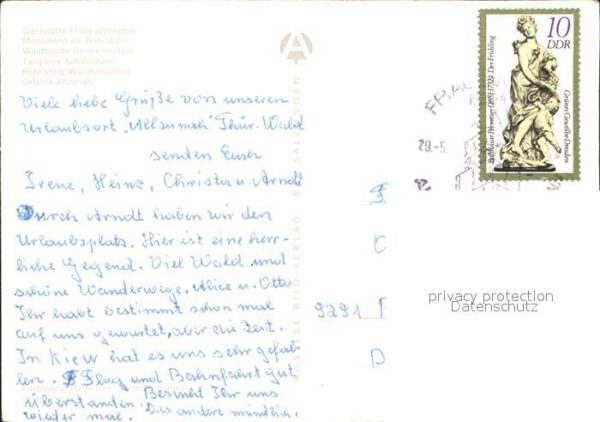 Gaststätte Fraubachmühle
Monument am Bohrstuhl
Waldbaude Dreiherrnstein
Talsperre Schönbrunn
Rennsteig-Wanderhütten
Ortsteil Allzunah
Viele liebe Grüße von unseren
Urlaubsort "Allzunah" Thür. Wald
senden Euch
Irene, Heinz, Christa u. Arndt
Durch Arndt haben wir den
Urlaubsplatz. Hier ist eine herr-
liche Gegend. Viel Wald und
schöne Wanderwege. Alice u. Otto
Ihr habt bestimmt schon mal
auf uns gewartet, aber die Zeit.
In Kiew hat es uns sehr gefal-
len. Flug und Bahnfahrt gut
überstanden. Besucht Ihr uns
wieder mal. Das andere mündlich.
BILD VERLAG
29.-5
10
DDR
Balthasar Permoser (1651-1732): Der Frühling
Grünes Gewölbe Dresden
9291
privacy protection
Datenschutz